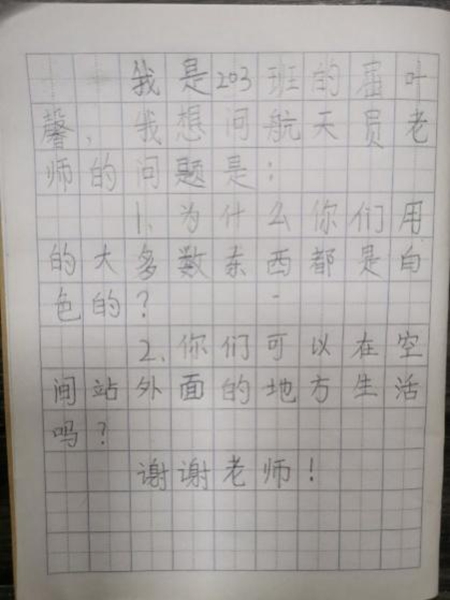 我是203班的 叶
馨，我想问航天员老
师的问题是：
1、为什么你们用
的大多数东西都是白
色的？
2、你们可以在空
间站外面的地方生活
吗？
谢谢老师！